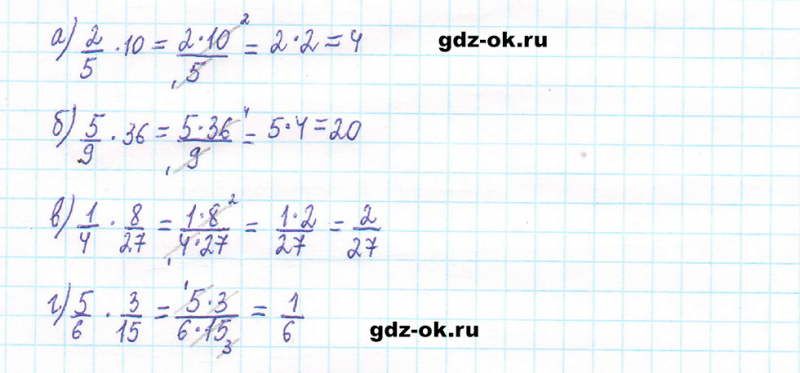 а) 2/5 · 10 = 2·10/5 = 2·2 = 4
gdz-ok.ru
б) 5/9 · 36 = 5·36/9 = 5·4 = 20
в) 1/4 · 8/27 = 1·8/4·27 = 1·2/27 = 2/27
г) 5/6 · 3/15 = 5·3/6·15 = 1/6
gdz-ok.ru